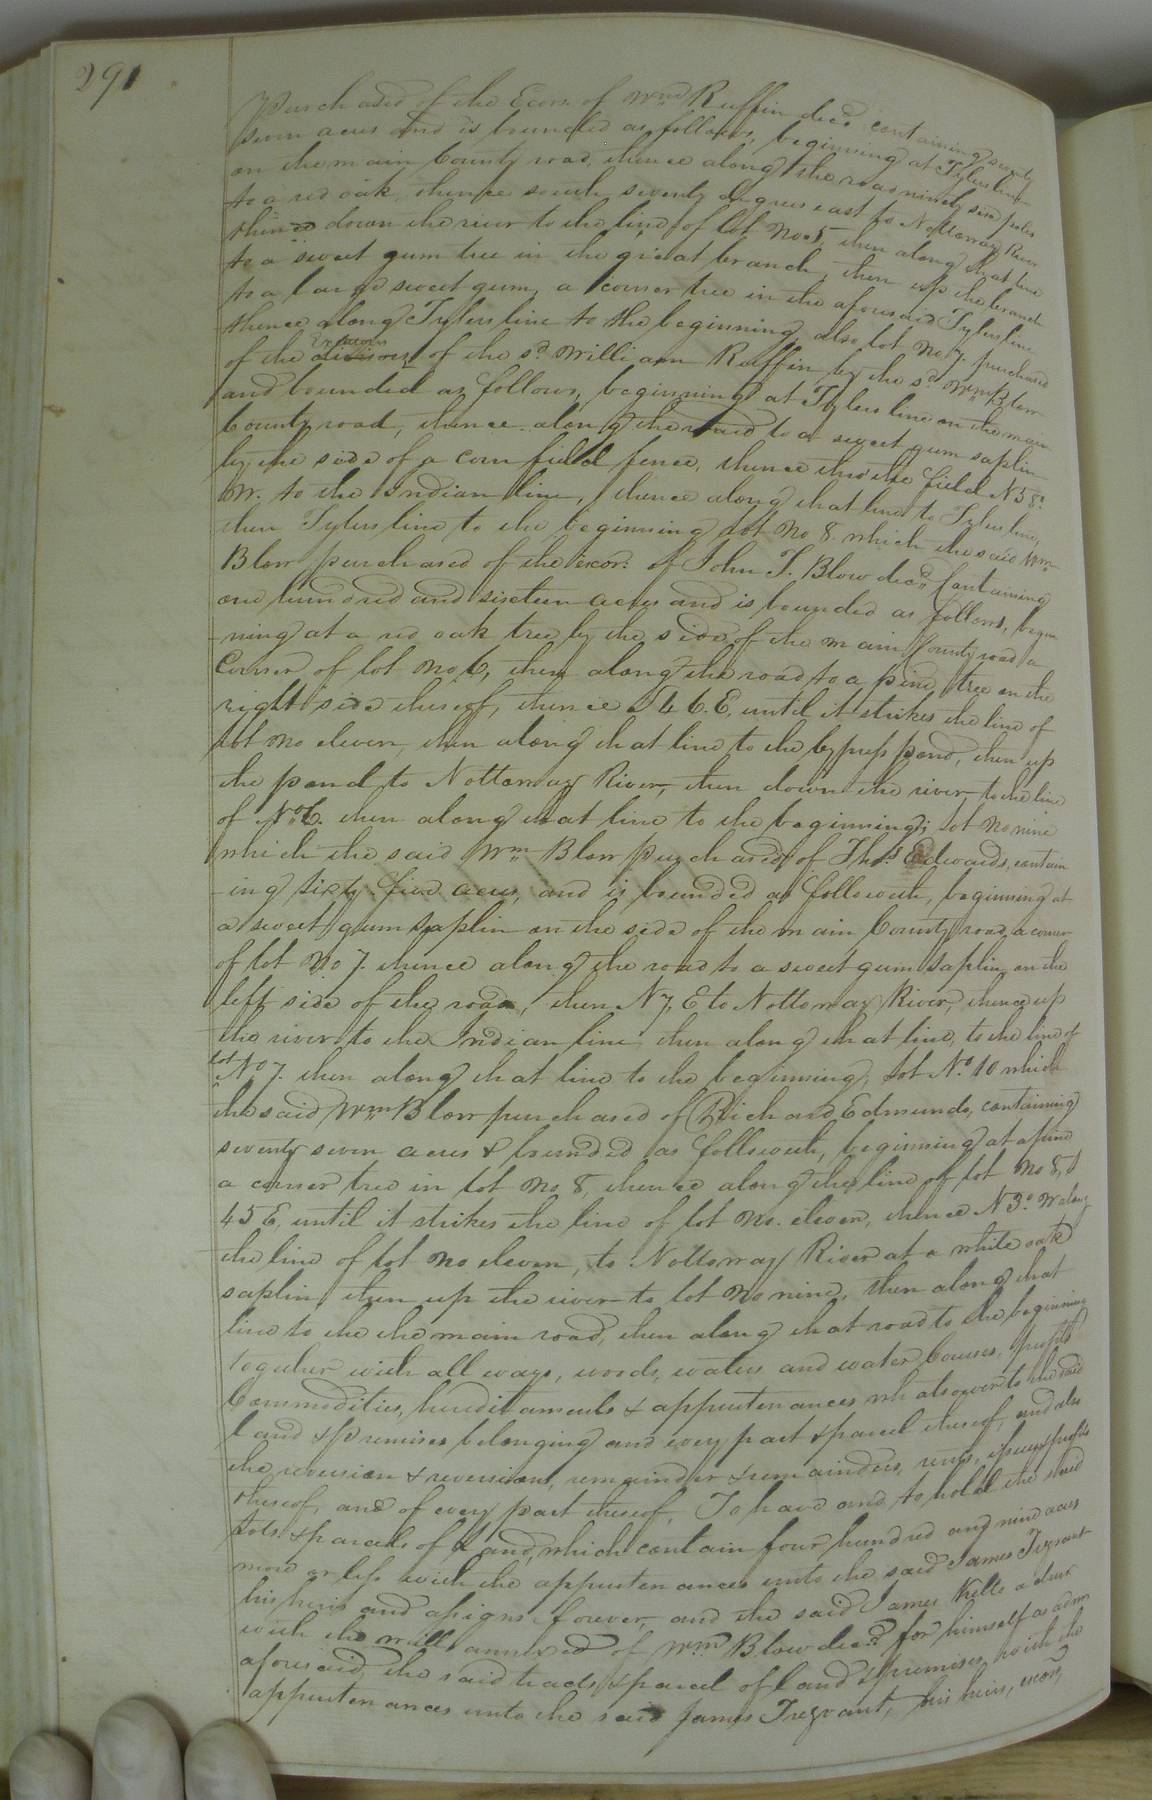 291
Purchased of the Ecors of Wm Ruffin decd containing seventy
seven acres and is bounded as follows, beginning at Tylers line
on the main County road, thence along the road ninety six poles
to a red oak, thence south seventy degrees east to Nottoway River
then down the river to the line of lot No 5, then along that line
to a sweet gum tree in the great branch, then up the branch
to a large sweet gum, a corner tree in the aforesaid Tylers line
thence along Tylers line to the beginning, also lot No 7. purchased
of the Executors of the sd. William Ruffin by the sd Wm Blow
and bounded as follows, beginning at Tylers line on the main
County road, thence along the road to a sweet gum saplin
by the side of a corn field fence, thence thro the field N 58°
W. to the Indian line, thence along that line to Tylers line,
then Tylers line to the beginning Lot No 8. which the said Wm
Blow purchased of the excor. of John T. Blow decd. Containing
one hundred and sixteen acres and is bounded as follows, begin
ning at a red oak tree by the side of the main County road a
Corner of lot No 6, then along the road to a pine tree on the
right side thereof, thence S 46. E. until it strikes the line of
lot No eleven, then along that line to the Cypress pond, then up
the pond to Nottoway River, then down the river to the line
of No 6. then along that line to the beginning; Lot No nine
which the said Wm Blow purchased of Thos Edwards, contain
-ing sixty five acres, and is bounded as followeth, beginning at
a sweet gum saplin on the side of the main County road, a corner
of lot No 7. thence along the road to a sweet gum saplin on the
left side of the road, then N 7, E to Nottoway River, thence up
the river to the Indian line then along that line, to the line of
lot No 7. then along that line to the beginning, Lot No. 10 which
the said Wm Blow purchased of Richard Edmunds, containing
seventy seven acres & bounded as followeth, beginning at a pine
a corner tree in lot No 8, thence along the line of lot No 8, S
45 E, until it strikes the line of lot No. eleven, thence N 3° W along
the line of lot No eleven, to Nottoway River at a white oak
saplin, then up the river to lot No nine, then along that
line to the the main road, then along that road to the beginning
together with all ways, woods, waters and water Courses, profits
Commodities, hereditaments & appurtenances whatsoever to the said
land & premises belonging and every part & parcel thereof, and also
the reversion & reversions, remainder & remainders, rents, issues & profits
thereof, and of every part thereof, To have and to hold the said
Lots & parcels of Land, which contain four hundred and nine acres
more or less with the appurtenances unto the said James Trezvant
his heirs and assigns forever, and the said James Kello admr
with the will annexed of Wm Blow decd. for himself as admr
aforesaid, the said tracts & parcel of land & premises, with the
appurtenances unto the said James Trezvant, his heirs, excors,